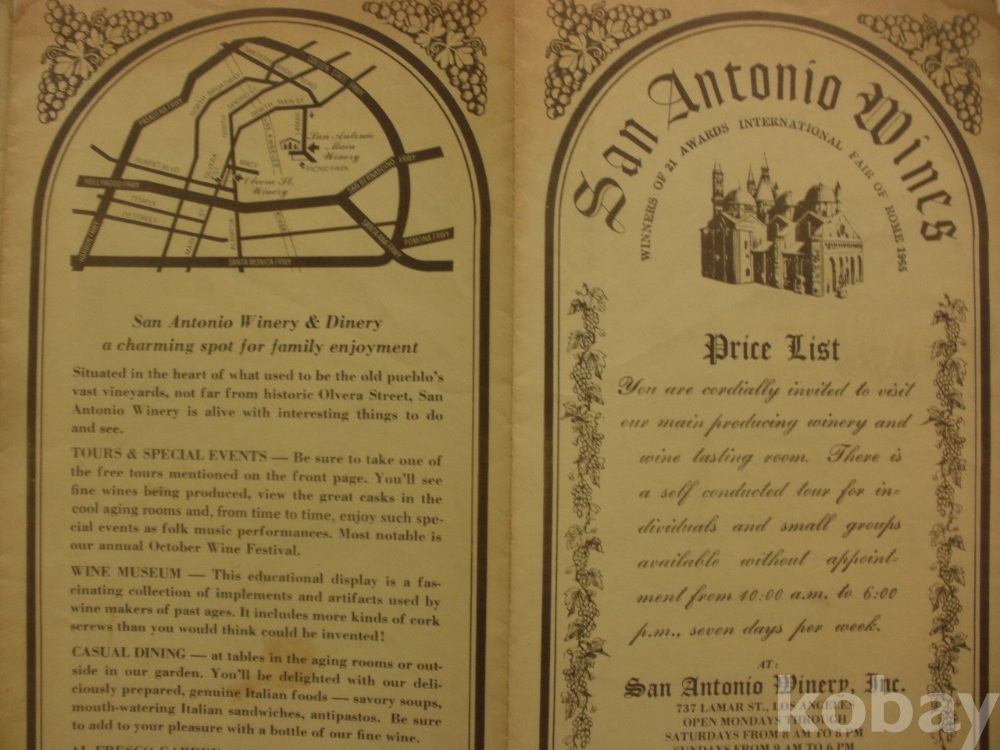 PASADENA FRWY
NORTH BROADWAY
NORTH MAIN ST.
LAMAR
San Antonio
Main
Winery
PICNIC PARK
SUNSET BLVD.
MACY
Olvera St.
Winery
HOLLYWOOD FRWY
SAN BERNARDINO FRWY
TEMPLE
1ST STREET
MAIN
ALAMEDA
POMONA FRWY
SANTA MONICA FRWY
San Antonio Winery & Dinery
a charming spot for family enjoyment
Situated in the heart of what used to be the old pueblo's
vast vineyards, not far from historic Olvera Street, San
Antonio Winery is alive with interesting things to do
and see.
TOURS & SPECIAL EVENTS — Be sure to take one of
the free tours mentioned on the front page. You'll see
fine wines being produced, view the great casks in the
cool aging rooms and, from time to time, enjoy such spe-
cial events as folk music performances. Most notable is
our annual October Wine Festival.
WINE MUSEUM — This educational display is a fas-
cinating collection of implements and artifacts used by
wine makers of past ages. It includes more kinds of cork
screws than you would think could be invented!
CASUAL DINING — at tables in the aging rooms or out-
side in our garden. You'll be delighted with our deli-
ciously prepared, genuine Italian foods — savory soups,
mouth-watering Italian sandwiches, antipastos. Be sure
to add to your pleasure with a bottle of our fine wine.
AL FRESCO GARDEN
San Antonio Wines
WINNERS OF 21 AWARDS INTERNATIONAL FAIR OF ROME 1965
Price List
You are cordially invited to visit
our main producing winery and
wine tasting room. There is
a self conducted tour for in-
dividuals and small groups
available without appoint-
ment from 10:00 a.m. to 6:00
p.m., seven days per week.
AT:
San Antonio Winery, Inc.
737 LAMAR ST., LOS ANGELES
OPEN MONDAYS THROUGH
SATURDAYS FROM 8 AM TO 8 PM
SUNDAYS FROM 9 AM TO 6 PM